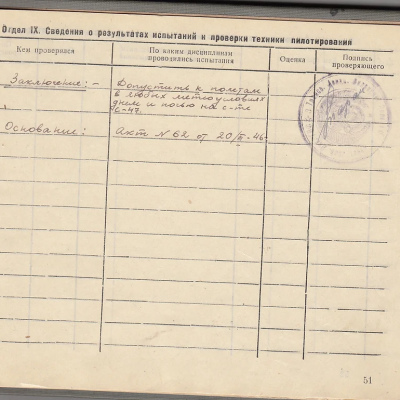 Отдел IX. Сведения о результатах испытаний и проверки техники пилотирования
Кем проверялся
По каким дисциплинам проводились испытания
Оценка
Подпись проверяющего
Заключение: -
Допустить к полетам
в любых метеоусловиях
днем и ночью на с-те
Основание:
Акт N 62 от 20/
51